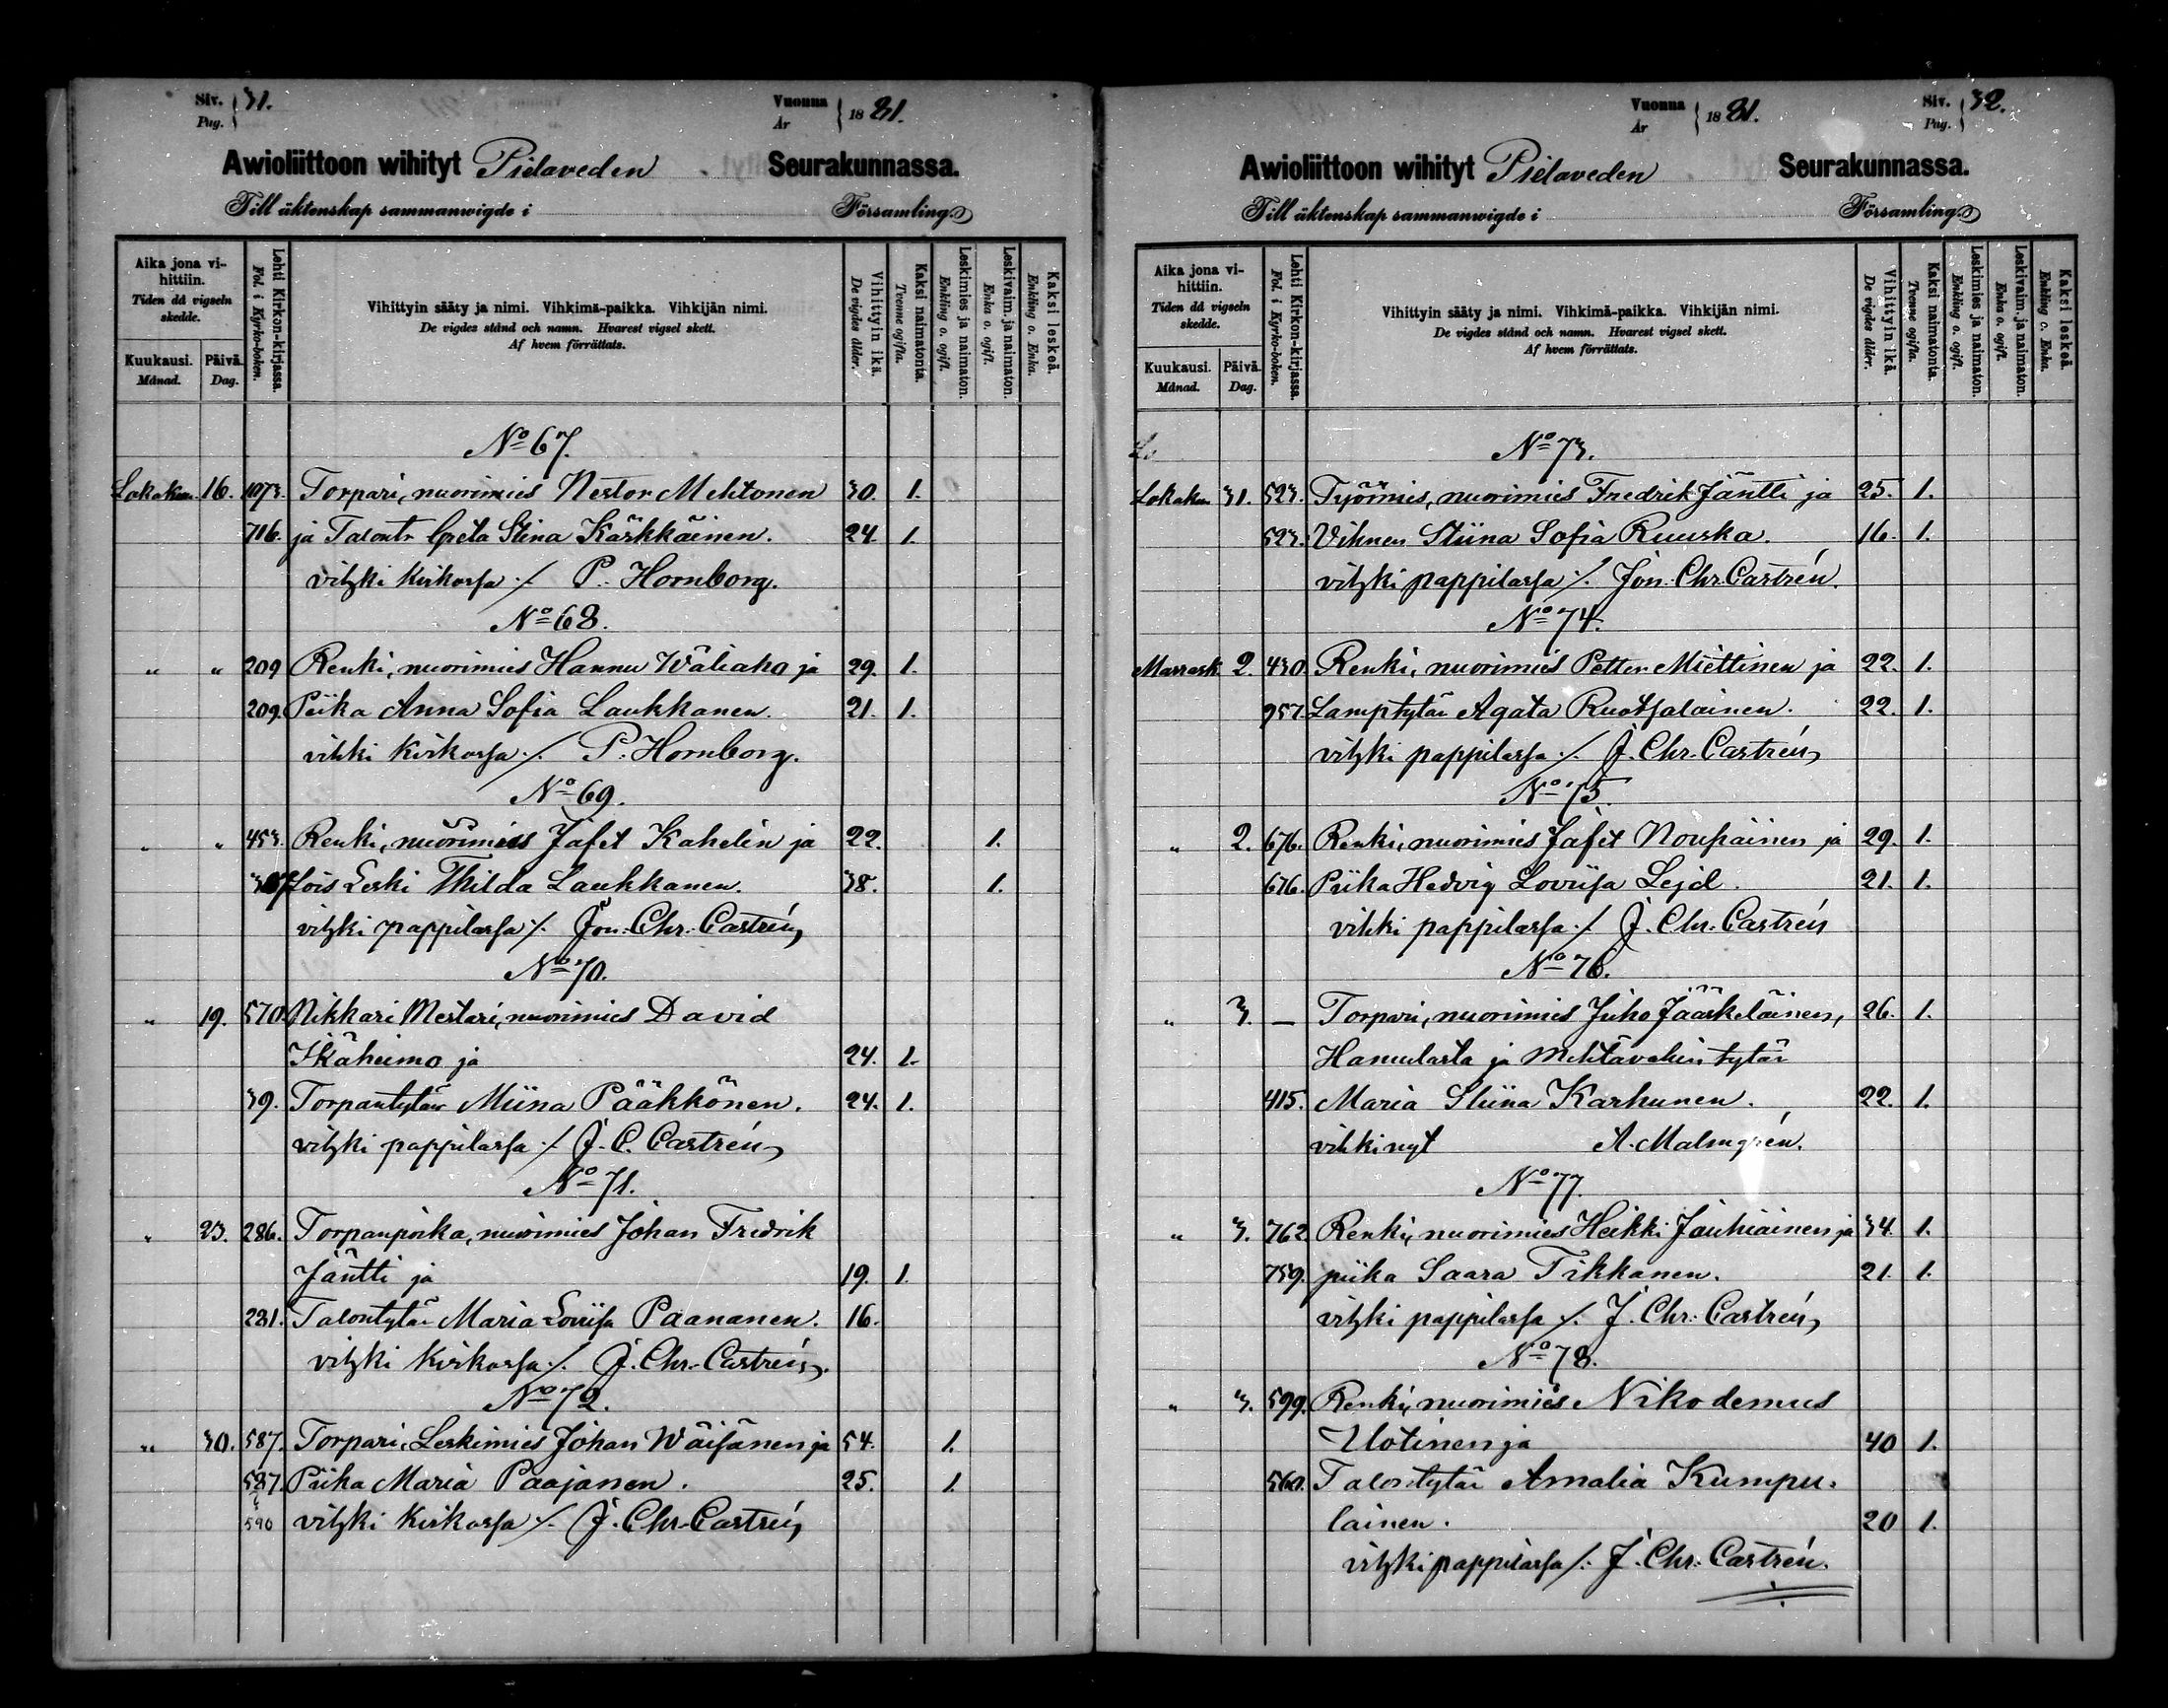 Siv. 31.
Pag.
Vuonna
År 1881.
Awioliittoon wihityt Pielaveden Seurakunnassa.
Till äktenskap sammanwigde i Församling.
Aika jona vi-
hittiin.
Tiden då vigseln
skedde.
Kuukausi.
Månad.
Päivä.
Dag.
Lehti Kirkon-kirjassa.
Fol. i Kyrko-boken.
Vihittyin sääty ja nimi. Vihkimä-paikka. Vihkijän nimi.
De vigdes stånd och namn. Hvarest vigsel skett.
Af hvem förrättats.
Vihittyin ikä.
De vigdes ålder.
Kaksi naimatonta.
Tvenne ogifta.
Leskimies ja naimaton.
Enkling o. ogift.
Leskivaim. ja naimaton.
Enka o. ogift.
Kaksi leskeä.
Enkling o. Enka.
No 67.
Lokakuu. 16. 1073. Torpari, nuorimies Nestor Mehtonen 30. 1.
716. ja Talontr Greta Stina Kärkkäinen. 24. 1.
vihki Kirkossa ./. P. Hornborg.
No 68.
" " 209 Renki, nuorimies Hannu Wäliaho ja 29. 1.
209. Piika Anna Sofia Laukkanen. 21. 1.
vihki Kirkossa ./. P. Hornborg.
No 69.
" " 453. Renki, nuorimies Jafet Kahelin ja 22. 1.
Lois Leski Thilda Laukkanen. 38. 1.
vihki pappilassa ./. Jon. Chr. Castrén
No 70.
" 19. 570. Nikkari Mestari, nuorimies David
Ikäheimo ja 24. 1.
39. Torpantytär Miina Pääkkönen. 24. 1.
vihki pappilassa ./. J. C. Castrén
No 71.
" 23. 286. Torpanpoika, nuorimies Johan Fredrik
Jäntti ja 19. 1.
281. Talontytär Maria Lovisa Paananen. 16.
vihki Kirkossa ./. J. Chr. Castrén.
No 72.
" 30. 587. Torpari, Leskimies Johan Wäisänen ja 54. 1.
587. Piika Maria Paajanen. 25. 1.
590 vihki Kirkossa ./. J. Chr. Castrén
Vuonna
År 1881.
Siv. 32.
Pag.
Awioliittoon wihityt Pielaveden Seurakunnassa.
Till äktenskap sammanwigde i Församling.
Aika jona vi-
hittiin.
Tiden då vigseln
skedde.
Kuukausi.
Månad.
Päivä.
Dag.
Lehti Kirkon-kirjassa.
Fol. i Kyrko-boken.
Vihittyin sääty ja nimi. Vihkimä-paikka. Vihkijän nimi.
De vigdes stånd och namn. Hvarest vigsel skett.
Af hvem förrättats.
Vihittyin ikä.
De vigdes ålder.
Kaksi naimatonta.
Tvenne ogifta.
Leskimies ja naimaton.
Enkling o. ogift.
Leskivaim. ja naimaton.
Enka o. ogift.
Kaksi leskeä.
Enkling o. Enka.
Lo
No 73.
Lokakuu 31. 523. Työmies, nuorimies Fredrik Jäntti ja 25. 1.
523. Vihnen Stiina Sofia Ruuska. 16. 1.
vihki pappilassa ./. Jon. Chr. Castrén.
No 74.
Marrask. 2. 430. Renki, nuorimies Petter Miettinen ja 22. 1.
957. Lamptytär Agata Ruotsalainen. 22. 1.
vihki pappilassa ./. J. Chr. Castrén
No 75.
" 2. 676. Renki, nuorimies Jafet Nouhiainen ja 29. 1.
676. Piika Hedvig Loviisa Lejd. 21. 1.
vihki pappilassa ./. J. Chr. Castrén
No 76.
" 3. — Torpari, nuorimies Juho Jääskeläinen, 26. 1.
Hamulasta ja Mehtävahin tytär
415. Maria Stiina Karhunen. 22. 1.
vihkinyt A. Malmgrén.
No 77.
" 3. 762 Renki, nuorimies Heikki Jauhiainen ja 34. 1.
759. piika Saara Tikkanen. 21. 1.
vihki pappilassa ./. J. Chr. Castrén
No 78.
" 3. 599. Renki, nuorimies Nikodemus
Uotinen ja 40 1.
560. Talontytär Amalia Kumpu-
lainen. 20 1.
vihki pappilassa ./. J. Chr. Castrén.